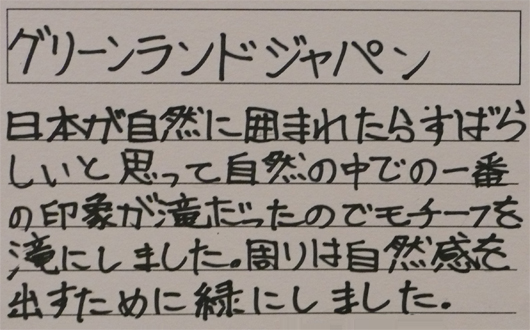 グリーンランドジャパン
日本が自然に囲まれたらすばら
しいと思って自然の中での一番
の印象が滝だったのでモチーフを
滝にしました。周りは自然感を
出すために緑にしました。